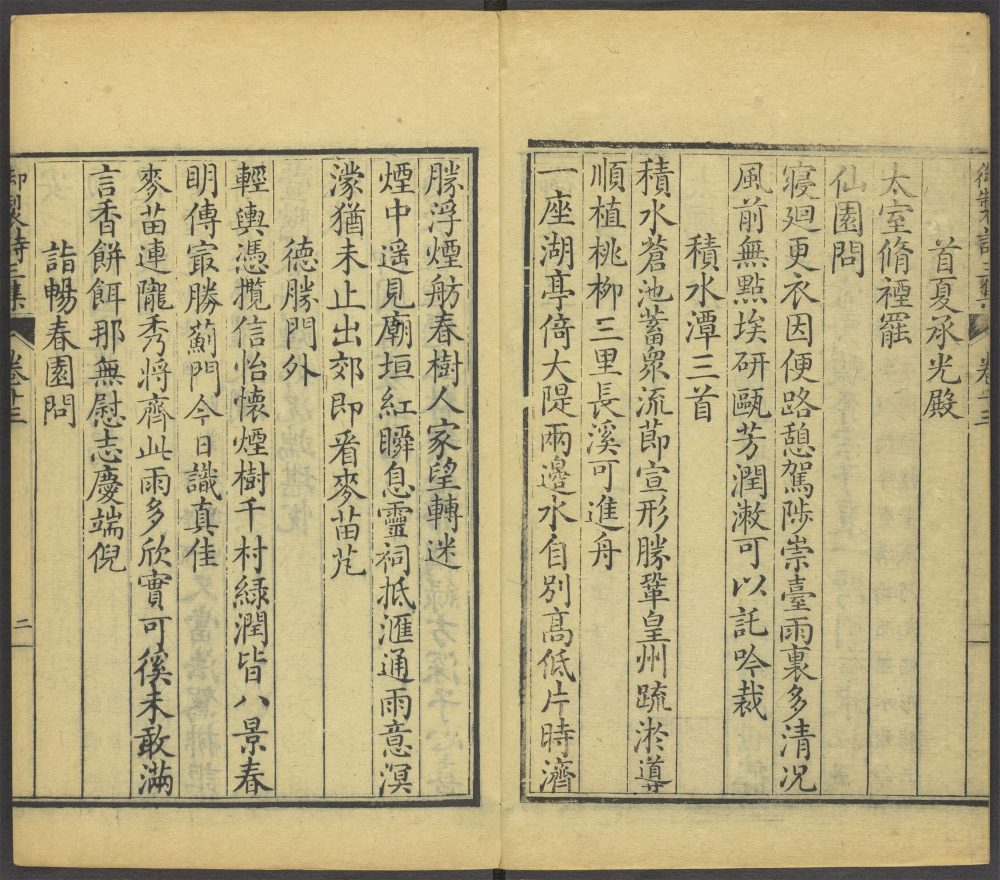 首夏承光殿
太室脩禋罷
仙園問
寢迴更衣因便路憩駕陟崇臺雨裏多清况
風前無點埃研甌芳潤漱可以託吟裁
積水潭三首
積水蒼池蓄衆流節宣形勝鞏皇州疏淤導
順植桃柳三里長溪可進舟
一座湖亭倚大隄兩邊水自別髙低片時濟
勝浮煙舫春樹人家望轉迷
煙中遥見廟垣紅瞬息靈祠抵滙通雨意溟
濛猶未止出郊即看麥苗芃
德勝門外
輕輿憑攬信怡懷煙樹千村緑潤皆八景春
明傳㝡勝薊門今日識真佳
麥苗連隴秀將齊此雨多欣實可徯未敢滿
言香餅餌那無慰志慶端倪
詣暢春園問
御製詩三集 卷廿三 二